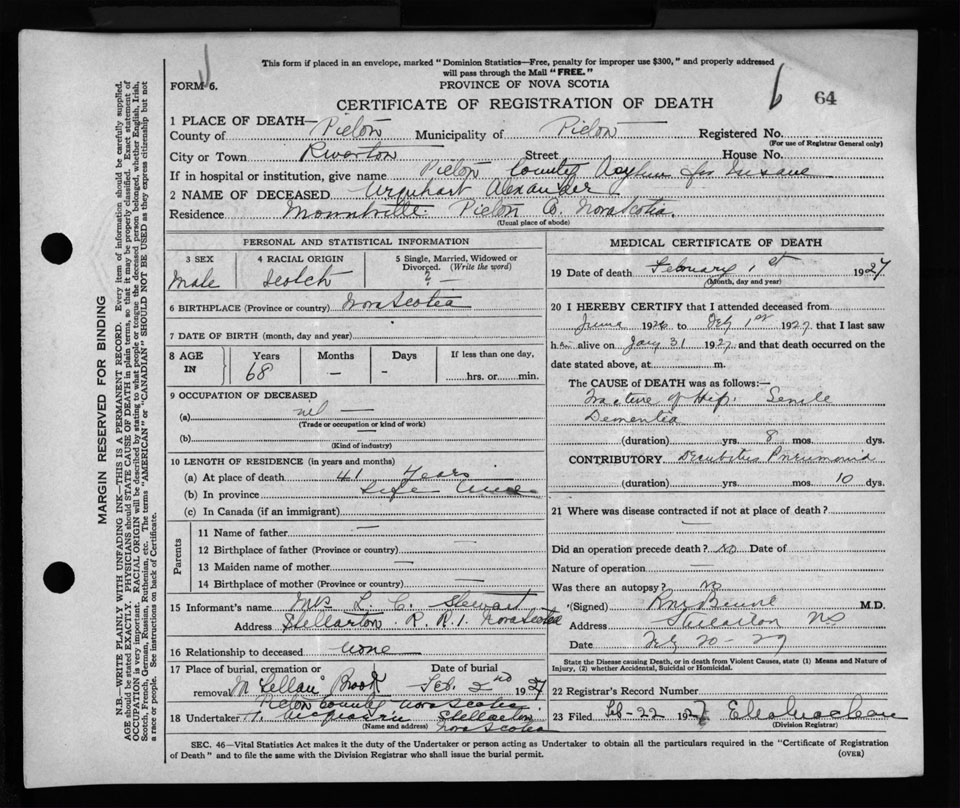 This form if placed in an envelope, marked "Dominion Statistics—Free, penalty for improper use $300," and properly addressed
will pass through the Mall "FREE."
FORM 6.
PROVINCE OF NOVA SCOTIA
CERTIFICATE OF REGISTRATION OF DEATH
6 64
1 PLACE OF DEATH—
County of Pictou Municipality of Pictou Registered No.
(For use of Registrar General only)
City or Town Riverton Street House No.
If in hospital or institution, give name Pictou County Asylum for Insane
2 NAME OF DECEASED Urquhart Alexander
Residence Mountville. Pictou Co. Nova Scotia.
(Usual place of abode)
PERSONAL AND STATISTICAL INFORMATION
3 SEX
Male
4 RACIAL ORIGIN
Scotch
5 Single, Married, Widowed or
Divorced. (Write the word)
? —
6 BIRTHPLACE (Province or country) Nova Scotia
7 DATE OF BIRTH (month, day and year)
8 AGE
IN
Years
68
Months
—
Days
-
If less than one day,
hrs. or min.
9 OCCUPATION OF DECEASED
(a) nil —
(Trade or occupation or kind of work)
(b) —
(Kind of industry)
10 LENGTH OF RESIDENCE (in years and months)
(a) At place of death 41 Years
(b) In province Life time
(c) In Canada (if an immigrant)
Parents
11 Name of father —
12 Birthplace of father (Province or country) —
13 Maiden name of mother —
14 Birthplace of mother (Province or country) —
15 Informant's name Mrs L. C. Stewart
Address Stellarton. R.R.1. Nova Scotia
16 Relationship to deceased none
17 Place of burial, cremation or
removal McLellan's Brook
Pictou County Nova Scotia
Date of burial
Feb. 2nd 1927
18 Undertaker Stellarton
(Name and address) Nova Scotia
MEDICAL CERTIFICATE OF DEATH
19 Date of death February 1st 1927
(Month, day and year)
20 I HEREBY CERTIFY that I attended deceased from
June 1926 to Feby 1st 1927 that I last saw
h im alive on Jany 31 1927 and that death occurred on the
date stated above, at m.
The CAUSE of DEATH was as follows:—
Fracture of Hip. Senile
Dementia
(duration) yrs. 8 mos. dys.
CONTRIBUTORY Decubitus Pneumonia
(duration) yrs. mos. 10 dys.
21 Where was disease contracted if not at place of death?
—
Did an operation precede death? No Date of
Nature of operation —
Was there an autopsy? No
(Signed) M.D.
Address Stellarton NS
Date Feby 20-27
State the Disease causing Death, or in death from Violent Causes, state (1) Means and Nature of
Injury, (2) whether Accidental, Suicidal or Homicidal.
22 Registrar's Record Number
23 Filed Feb-22 1927
(Division Registrar)
SEC. 46—Vital Statistics Act makes it the duty of the Undertaker or person acting as Undertaker to obtain all the particulars required in the "Certificate of Registration
of Death" and to file the same with the Division Registrar who shall issue the burial permit. (OVER)
MARGIN RESERVED FOR BINDING
N.B.—WRITE PLAINLY WITH UNFADING INK—THIS IS A PERMANENT RECORD. Every item of information should be carefully supplied.
AGE should be stated EXACTLY. PHYSICIANS should STATE CAUSE OF DEATH in plain terms, so that it may be properly classified. Exact statement of
OCCUPATION is very important. RACIAL ORIGIN will be described by stating to what people or tongue the deceased person belonged, whether English, Irish,
Scotch, French, German, Russian, Ruthenian, etc. The terms "AMERICAN" or "CANADIAN" SHOULD NOT BE USED as they express citizenship but not
a race or people. See instructions on back of Certificate.